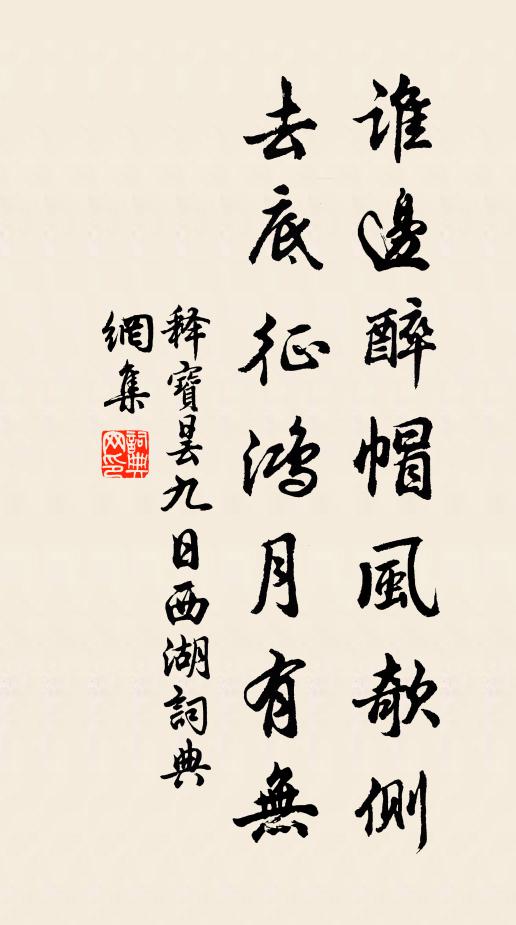 誰邊醉帽風欹側
去底征鴻月有無
釋寶曇九日西湖詞典
網集
詞典網印